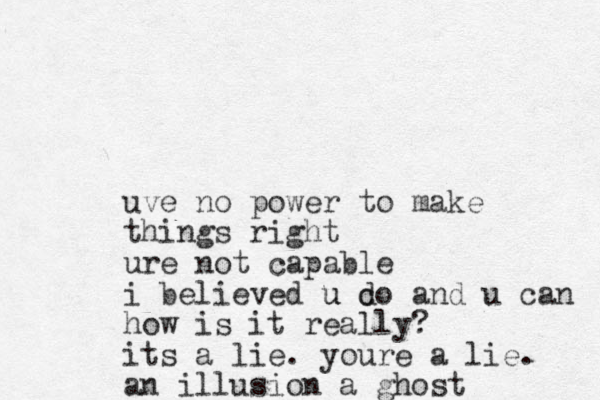 uve no power to make
things right
ure not capable
i believed u do and u can
how is it really?
its a lie. youre a lie.
an illusion a ghost